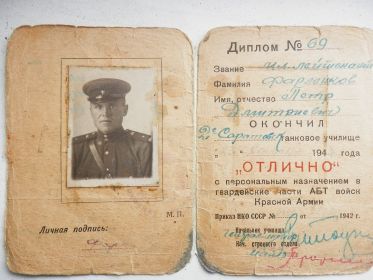 Личная подпись:
М. П.
Диплом № 69
Звание мл. лейтенант
Фамилия
Имя, отчество Петр
Дмитриевич
ОКОНЧИЛ
танковое училище
194 года
„ОТЛИЧНО“
с персональным назначением в
гвардейские части АБТ войск
Красной Армии
Приказ НКО СССР № от 1942 г.
Начальник училища
Нач. строевого отдела